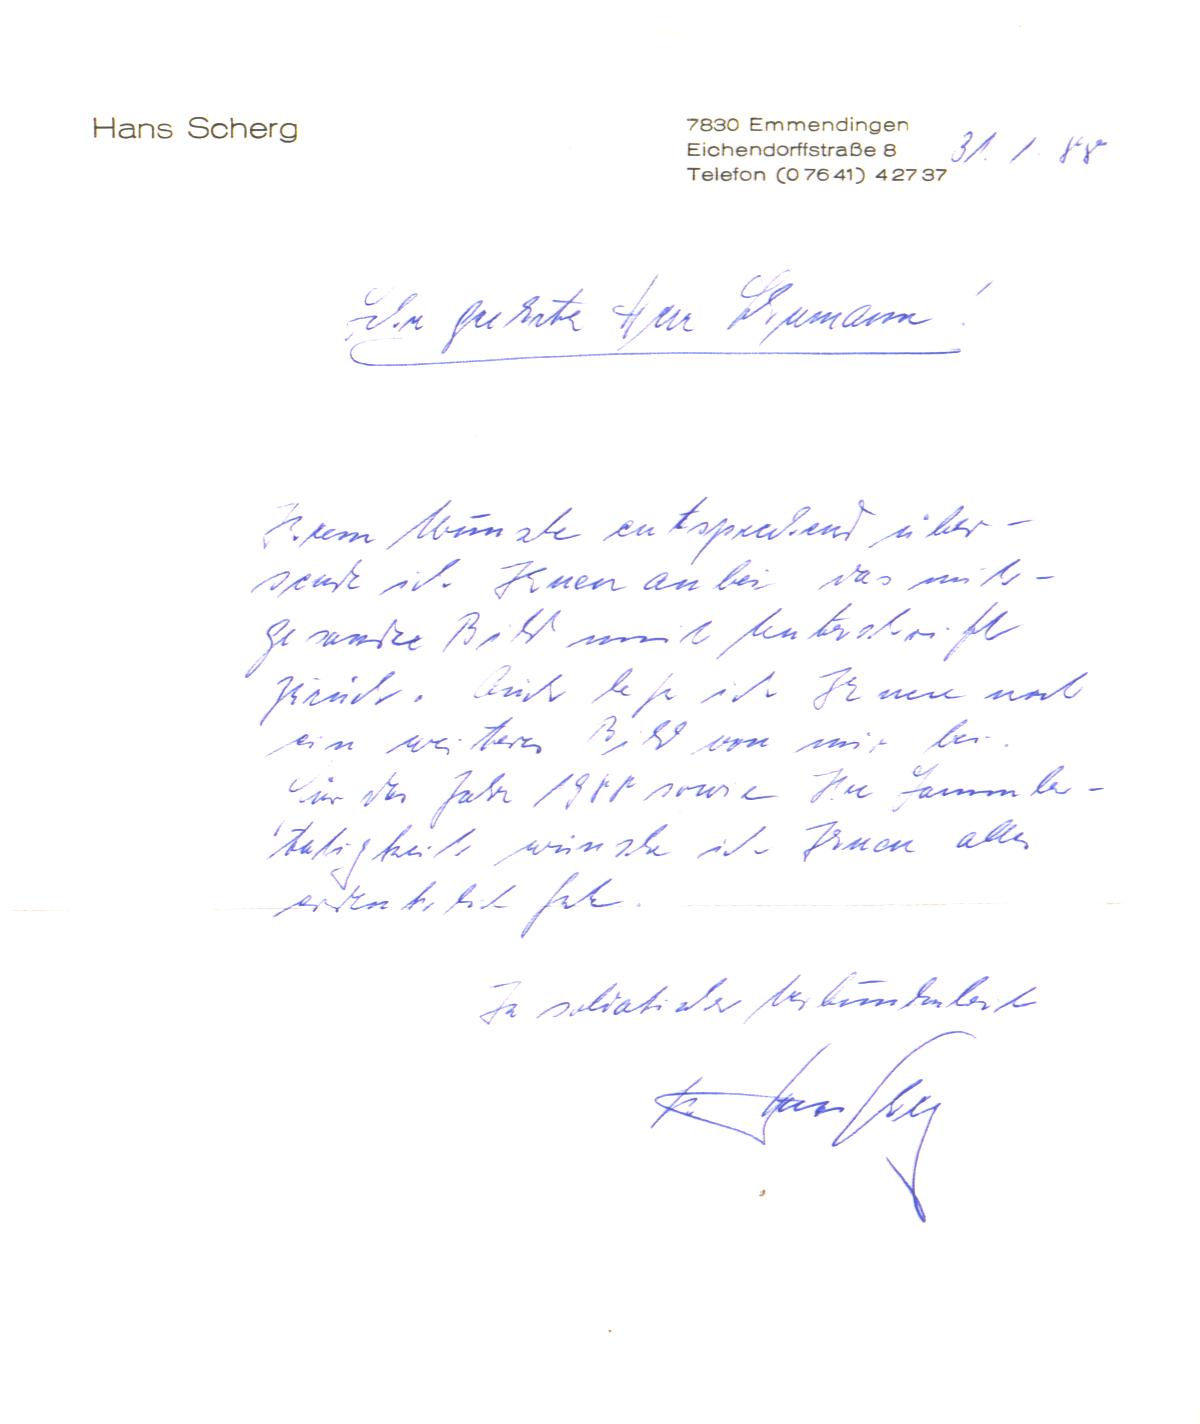 Hans Scherg
7830 Emmendingen
Eichendorffstraße 8
Telefon (0 76 41) 4 27 37
31. 1. 88
Sehr geehrter Herr
Ihrem Wunsche entsprechend über-
sende ich Ihnen anbei das mit-
gesandte Bild mit Unterschrift
zurück. Auch lege ich Ihnen noch
ein weiteres Bild von mir bei.
Für das Jahr 1988 sowie Ihre Sammler-
tätigkeit wünsche ich Ihnen alles
erdenklich Gute.
In soldatischer Verbundenheit
Hans Scherg